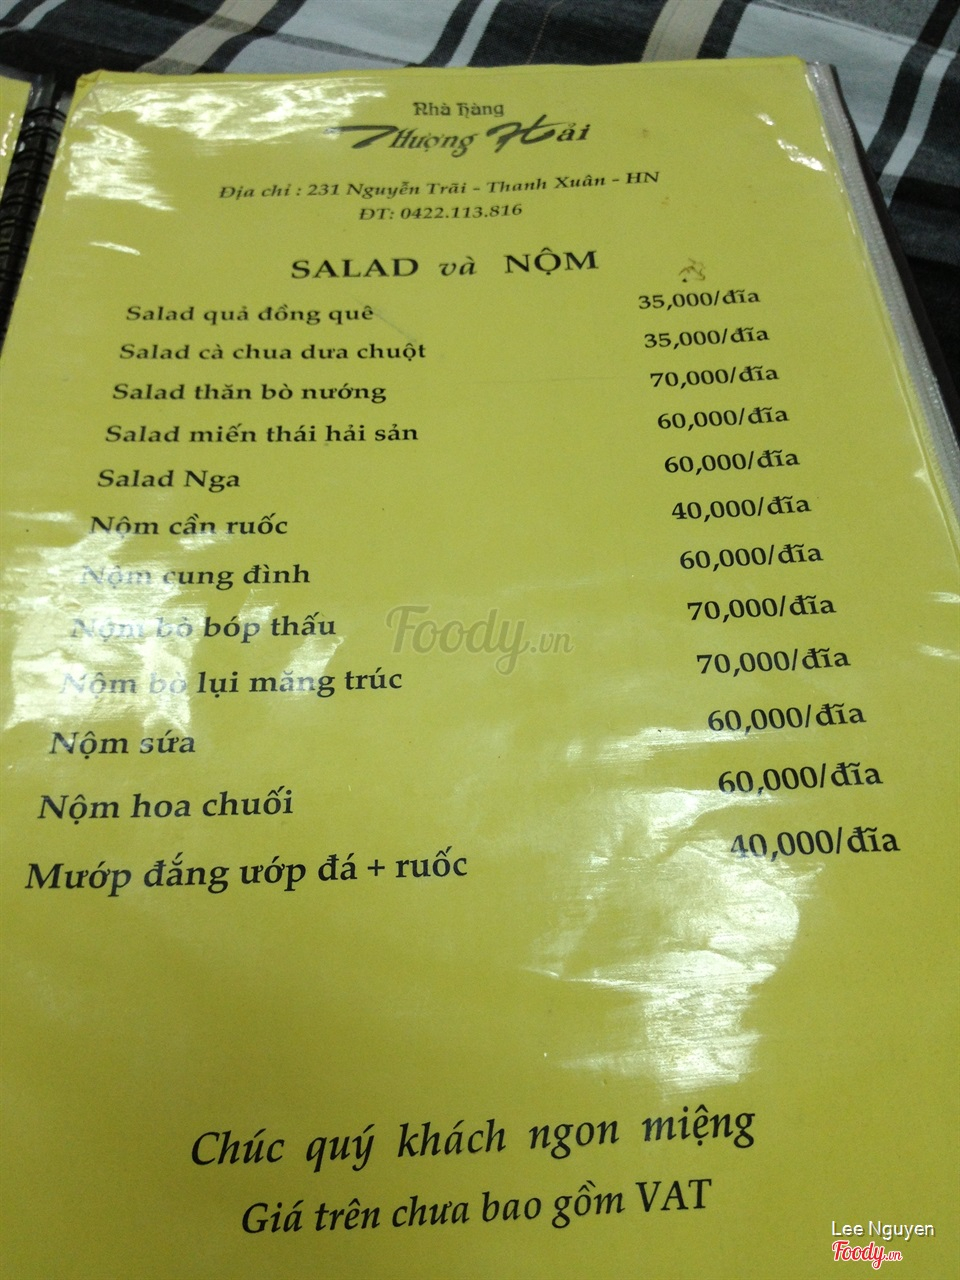 Nhà hàng
Thượng Hải
Địa chỉ : 231 Nguyễn Trãi - Thanh Xuân - HN
ĐT: 0422.113.816
SALAD và NỘM
Salad quả đồng quê 35,000/đĩa
Salad cà chua dưa chuột 35,000/đĩa
Salad thăn bò nướng 70,000/đĩa
Salad miến thái hải sản 60,000/đĩa
Salad Nga 60,000/đĩa
Nộm cần ruốc 40,000/đĩa
Nộm cung đình 60,000/đĩa
Nộm bò bóp thấu 70,000/đĩa
Nộm bò lụi măng trúc 70,000/đĩa
Nộm sứa 60,000/đĩa
Nộm hoa chuối 60,000/đĩa
Mướp đắng ướp đá + ruốc 40,000/đĩa
Foody.vn
Chúc quý khách ngon miệng
Giá trên chưa bao gồm VAT
Lee Nguyen
Foody.vn